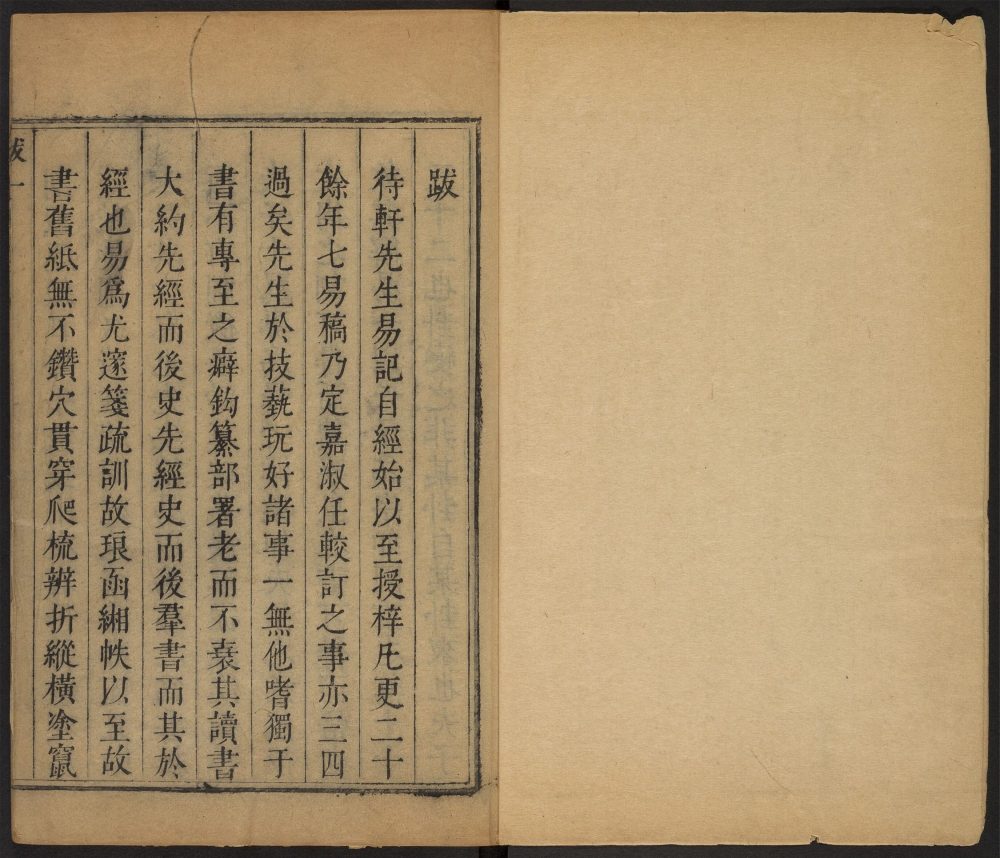 跋
待軒先生易記自經始以至授梓凡更二十
餘年七易稿乃定嘉淑任較訂之事亦三四
過矣先生於技藝玩好諸事一無他嗜獨于
書有專至之癖鈎纂部署老而不衰其讀書
大約先經而後史先經史而後羣書而其於
經也易爲尤邃箋疏訓故琅函緗帙以至故
書舊紙無不鑽穴貫穿爬梳辨折縱橫塗竄
跋一